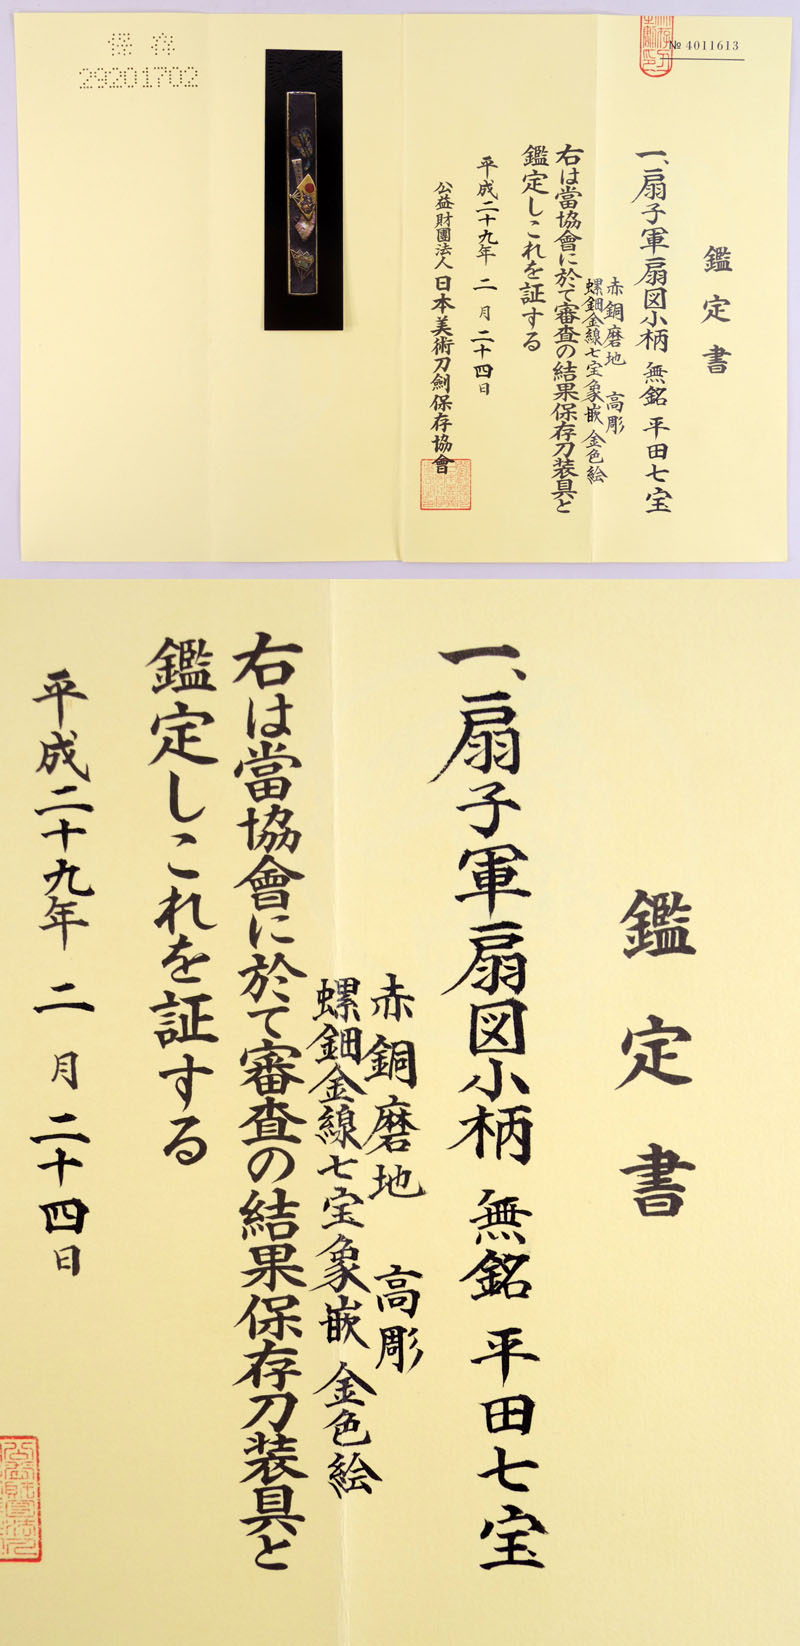 保存
29201702
№ 4011613
鑑定書
一、扇子軍扇図小柄 無銘 平田七宝
赤銅磨地 高彫
螺鈿金線七宝象嵌 金色絵
右は當協會に於て審査の結果保存刀装具と
鑑定しこれを証する
平成二十九年 二月 二十四日
公益財團法人 日本美術刀劍保存協會
鑑定書
一、扇子軍扇図小柄 無銘 平田七宝
赤銅磨地 高彫
螺鈿金線七宝象嵌 金色絵
右は當協會に於て審査の結果保存刀装具と
鑑定しこれを証する
平成二十九年 二月 二十四日